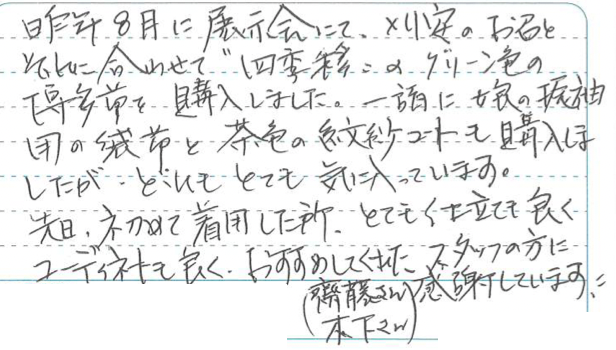 昨年8月に展示会にて、刈安のお召と
それに合わせて"四季彩"のグリーン色の
博多帯を購入しました。一緒に娘の振袖
用の袋帯と茶色の紋紗コートも購入しま
したが、どれもとても気に入っています。
先日、初めて着用した所、とても仕立ても良く
コーディネートも良く、おすすめしてくれた、スタッフの方に
(齊藤さん 感謝しています。
木下さん)